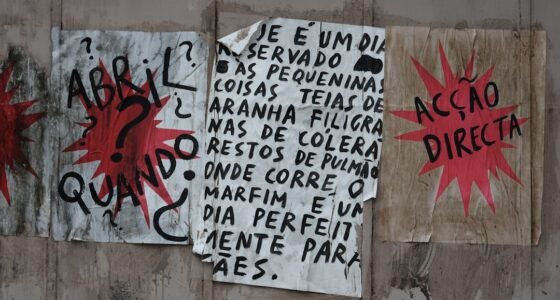 ? ?
ABRIL
? ? ?
QUANDO
?
JE É UM DIA
SERVADO
ÀS PEQUENINAS
COISAS TEIAS DE
ARANHA FILIGRA
NAS DE CÓLERA
RESTOS DE PULMÃO
ONDE CORRE O
MARFIM É UM
DIA PERFEIT
MENTE PARA
CÃES.
ACÇÃO
DIRECTA